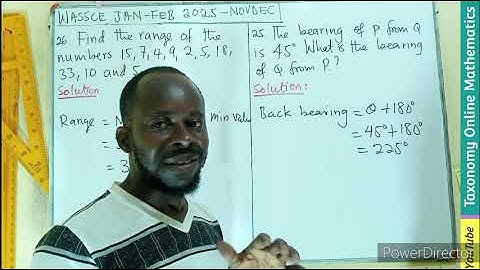 WASSCE JAN-FEB 2025-NOVDEC
26. Find the range of the
numbers 15, 7, 4, 9, 2, 5, 18,
33, 10 and 5
Solution
Range =
Min Value
=
= 3
25. The bearing of P from Q
is 45° What is the bearing
of Q from P?
Solution:
Back bearing = θ + 180°
= 45° + 180°
= 225°
Taxonomy Online Mathematics
YouTube
PowerDirector